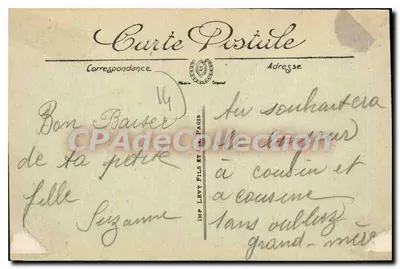 Carte Postale
Correspondance
Adresse
14
Bon Baiser
de ta petite
fille
Suzanne
IMP LEVY FILS ET Cie PARIS
Au souhaitera
le bonjour
à cousin et
a cousine
sans oubliez
grand-mère
CPADeCollection